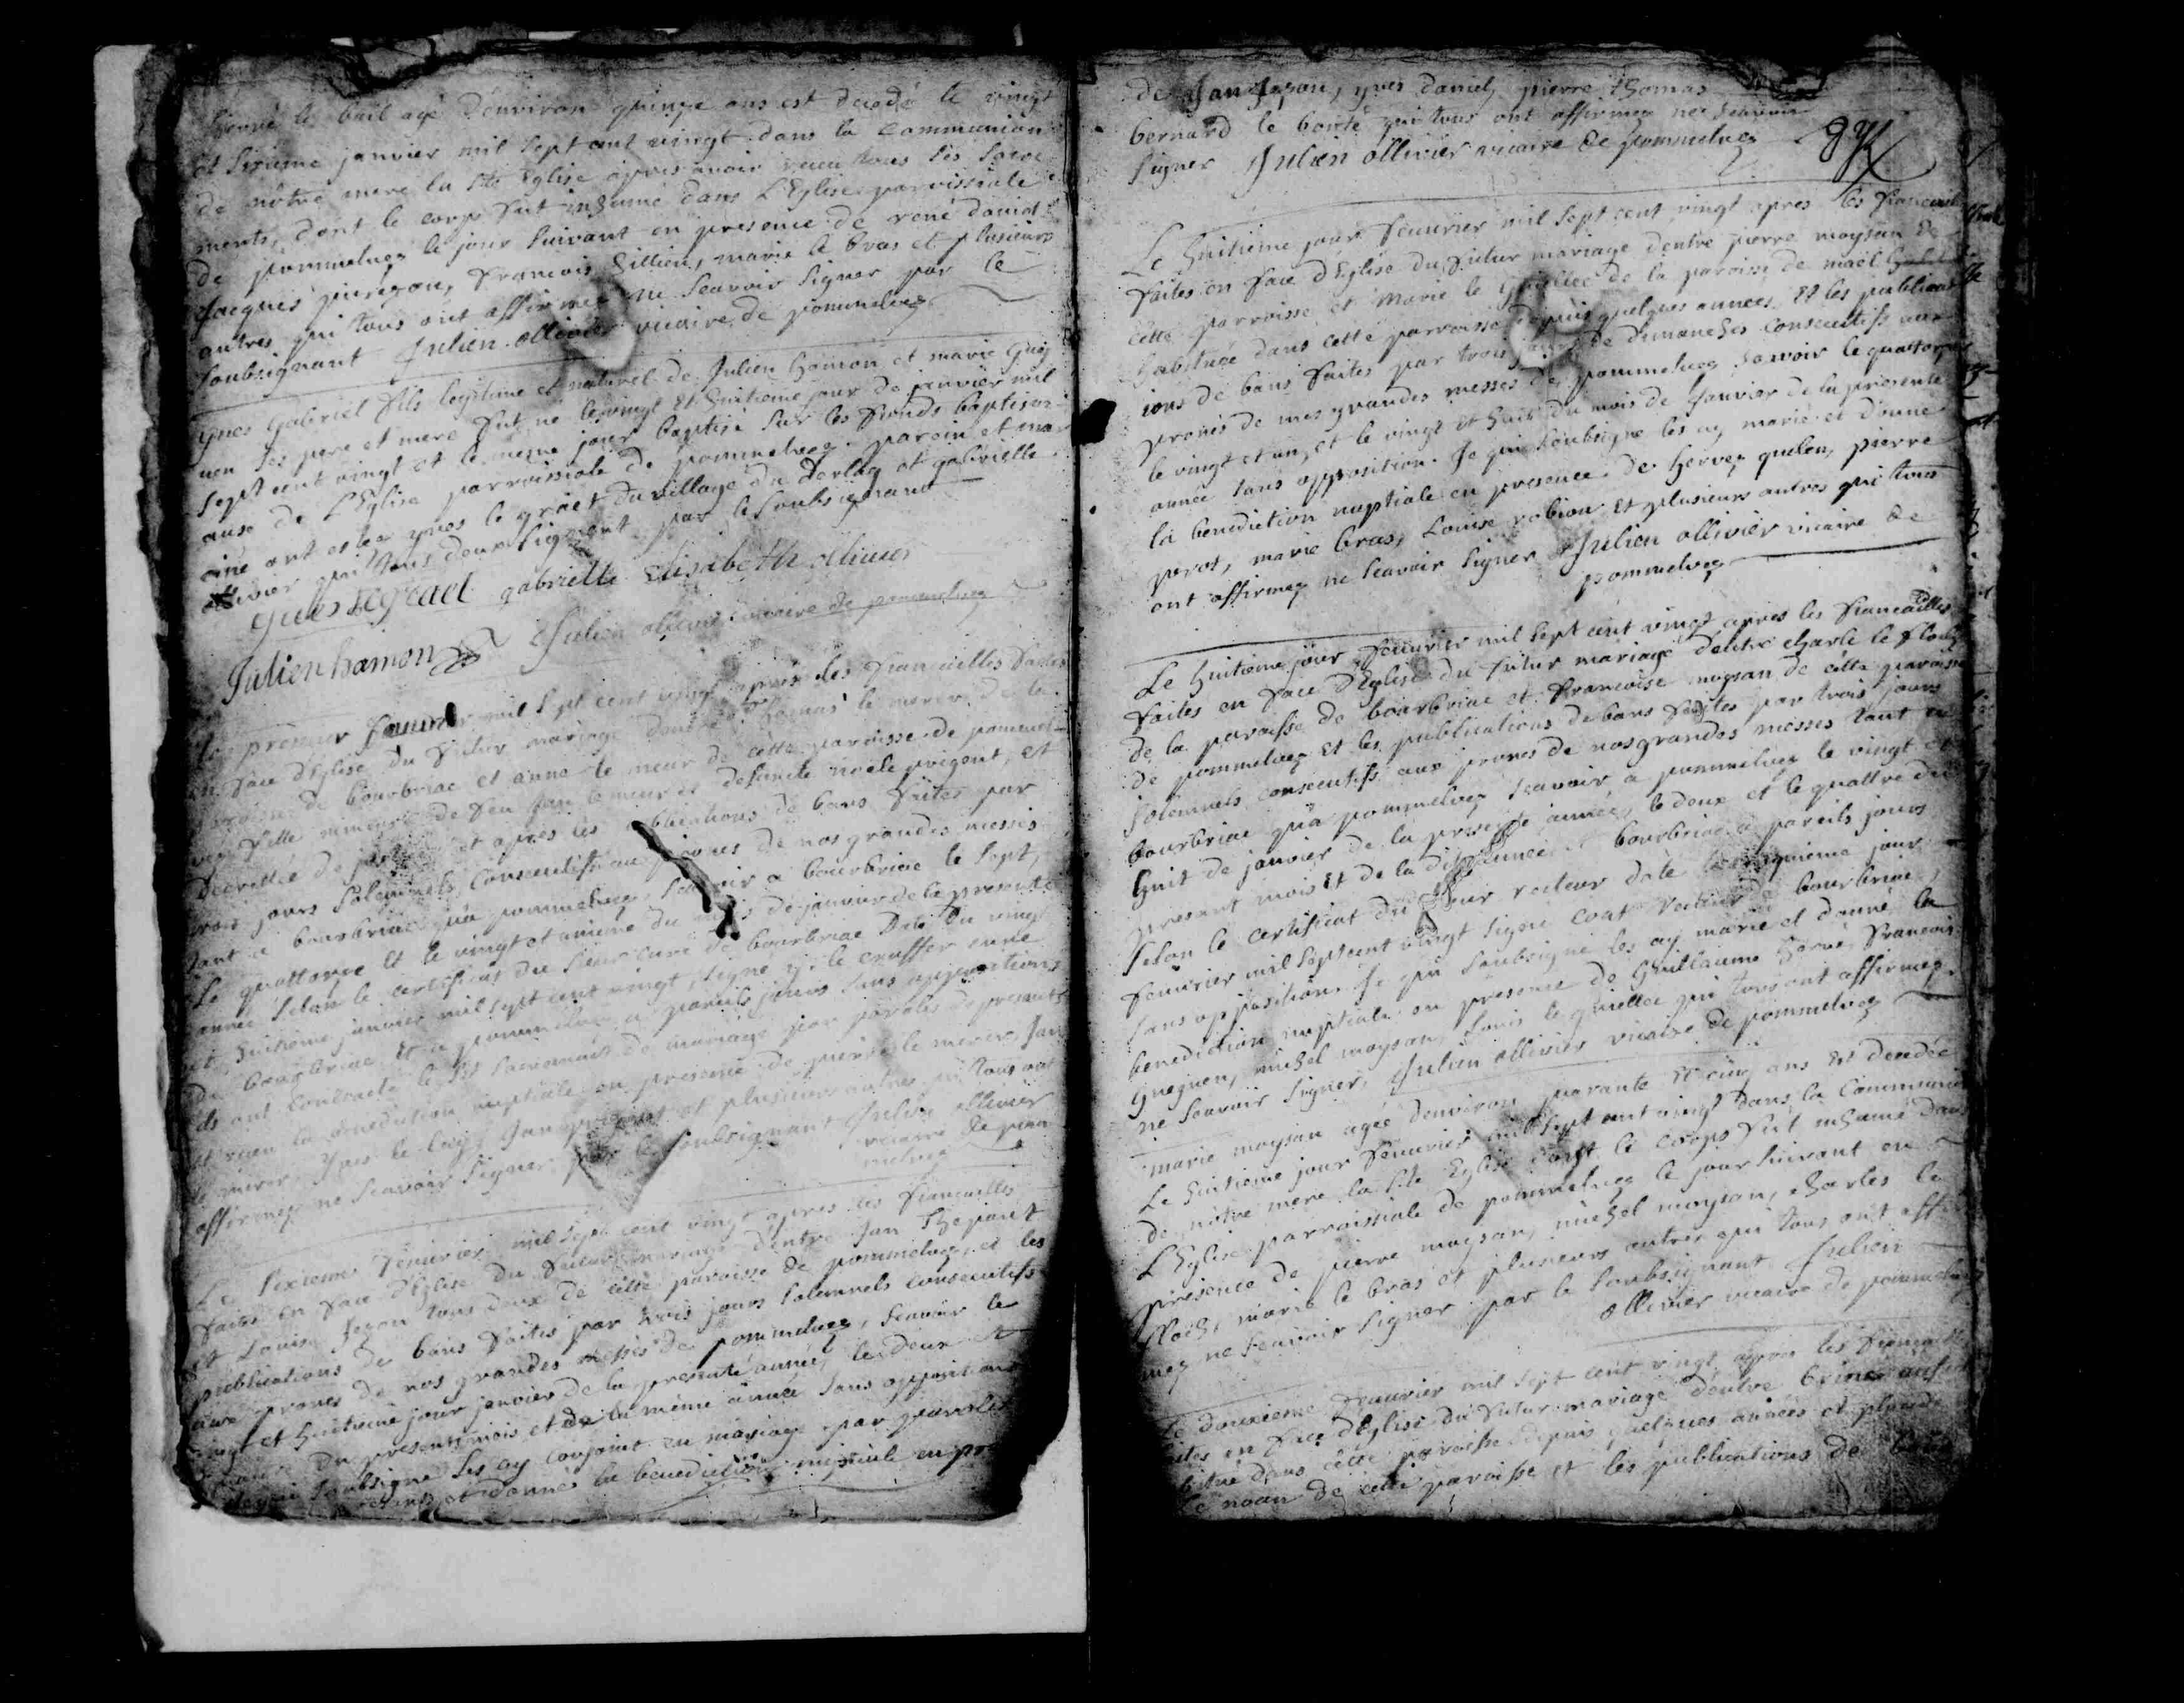 hervé le bail agé d'environ quinze ans est decedé le vingt
et sixieme janvier mil sept cent vingt dans la communion
de nôtre mere la ste Eglise apres avoir receu tous ses sacre
ments, dont le corps fut inhumé dans L'Eglise parroissiale
de pommelvez le jour suivant en presence de rené daniel
Jacques françois hillien, marie le bras et plusieurs
autres qui tous ont affirmez ne scavoir signer par le
soubsignant Julien ollivier vicaire de pommelvez
yves Gabriel fils legitime et naturel de Julien hamon et marie Guy
ses pere et mere fut né le vingt et huitieme jour de janvier mil
sept cent vingt et le mesme jour baptisé sur les fonds baptis
de L'Eglise parroissiale de pommelvez. parein et mar
eine ont estez yves le graet du village du derlez et gabrielle
ollivier qui tous deux signent par le soubsignant
yves Legraet gabrielle Elisabeth ollivier
Julien hamon Julien ollivier vicaire de pommelvez
Le premier mil sept cent vingt apres les fiancailles faites
en face d'Eglise du futur mariage dentre Thomas le merer de la
paroisse de bourbriac et anne le meur de cette paroisse de pommel-
vez fille mineure de feu Jan le meur et defuncte noele prigent, et
decretée de justice et apres les publications de bans faites par
trois jours solemnels consecutifs au prones de nos grandes messes
tant a bourbriac qu'a pommelvez scavoir a bourbriac le sept,
Le quattorze et le vingt et unieme du mois de janvier de la presente
année selon le certificat du sieur curé de bourbriac daté du vingt
et huitieme janvier mil sept cent vingt, signé y. le
de bourbriac et a pommelvez a pareils jours sans oppositions
ils ont contracté le st sacrement de mariage par paroles de presents
et receu la benediction nuptiale en presence de pierre le merer, Jan
le merer, yves le Jan prigent et plusieurs autres qui tous ont
affirmez ne scavoir signer par le soubsignant Julien ollivier
vicaire de pom
melvez
Le sixieme fevurier mil sept cent vingt apres les fiancailles
faites en face d'Eglise du futur mariage dentre Jan Thepault
et Louise Jezou tous deux de cette paroisse de pommelvez et les
publications de bans faites par trois jours solemnels consecutifs
aux prones de nos grandes messes de pommelvez, scavoir le
vingt et huitieme jour janvier de la presente année, le deux et
du present mois et de la même année sans oppositions
Je qui soubsigne les ay conjoint en mariage par paroles
et donné la benediction nuptiale en pre
de Jan Jezou, yves daniel, pierre thomas
bernard le bonté qui tous ont affirmez ne scavoir
signer Julien ollivier vicaire de pommelvez
Le huitieme jour fevurier mil sept cent vingt apres les fiancailles
faites en face d'Eglise du futur mariage dentre pierre moysan de
cette parroisse et Marie le quellec de la paroisse de mael
habituée dans cette parroisse depuis quelques années et les publicat
ions de bans faites par trois jours de dimanches consecutifs aux
prones de nos grandes messes de pommelvez scavoir le quattorze
le vingt et un, et le vingt et huit du mois de Janvier de la presente
année sans opposition. Je qui soubsigne les ay marié et donné
la benediction nuptiale en presence de hervez quelen, pierre
perot, marie bras, Louise robiou et plusieurs autres qui tous
ont affirmez ne scavoir signer Julien ollivier vicaire de
pommelvez
Le huitieme jour fevurier mil sept cent vingt apres les fiancailles
faites en face d'Eglise du futur mariage dentre charle le floch
de la paroisse de bourbriac et francoise moysan de cette paroisse
de pommelvez et les publications de bans faites par trois jours
solemnels consecutifs aux prones de nos grandes messes tant a
bourbriac qu'a pommelvez scavoir a pommelvez le vingt et
huit de janvier de la presente année, le deux et le quattre du
present mois et de la dite année et bourbriac a pareils jours
selon le certificat du sieur recteur daté le cinquieme jour
fevurier mil sept cent vingt signé coat recteur de bourbriac,
sans opposition. Je qui soubsigné les ay marié et donné la
benediction nuptiale en presence de Guillaume hervé, francois
Gueguen, michel moysan, Louis le quellec qui tous ont affirmez
ne scavoir signer, Julien ollivier vicaire de pommelvez
marie moysan agée d'environ quarante et cinq ans est decedée
Le huitieme jour fevurier mil sept cent vingt dans la communion
de nôtre mere la ste Eglise dont le corps fut inhumé dans
L'Eglise parroissiale de pommelvez le jour suivant en
presence de pierre moysan, michel moysan, charles le
floch, marie le bras et plusieurs autres qui tous ont affir
mez ne scavoir signer par le soubsignant Julien
ollivier vicaire de pommelvez
Le douxieme fevurier mil sept cent vingt apres les fiancailles
faites en face d'Eglise du futur mariage dentre
bitué dans cette paroisse depuis quelques années et
de cette paroisse et les publications de bans